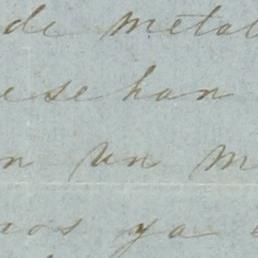 de metal
ese han
n un m
nos ya